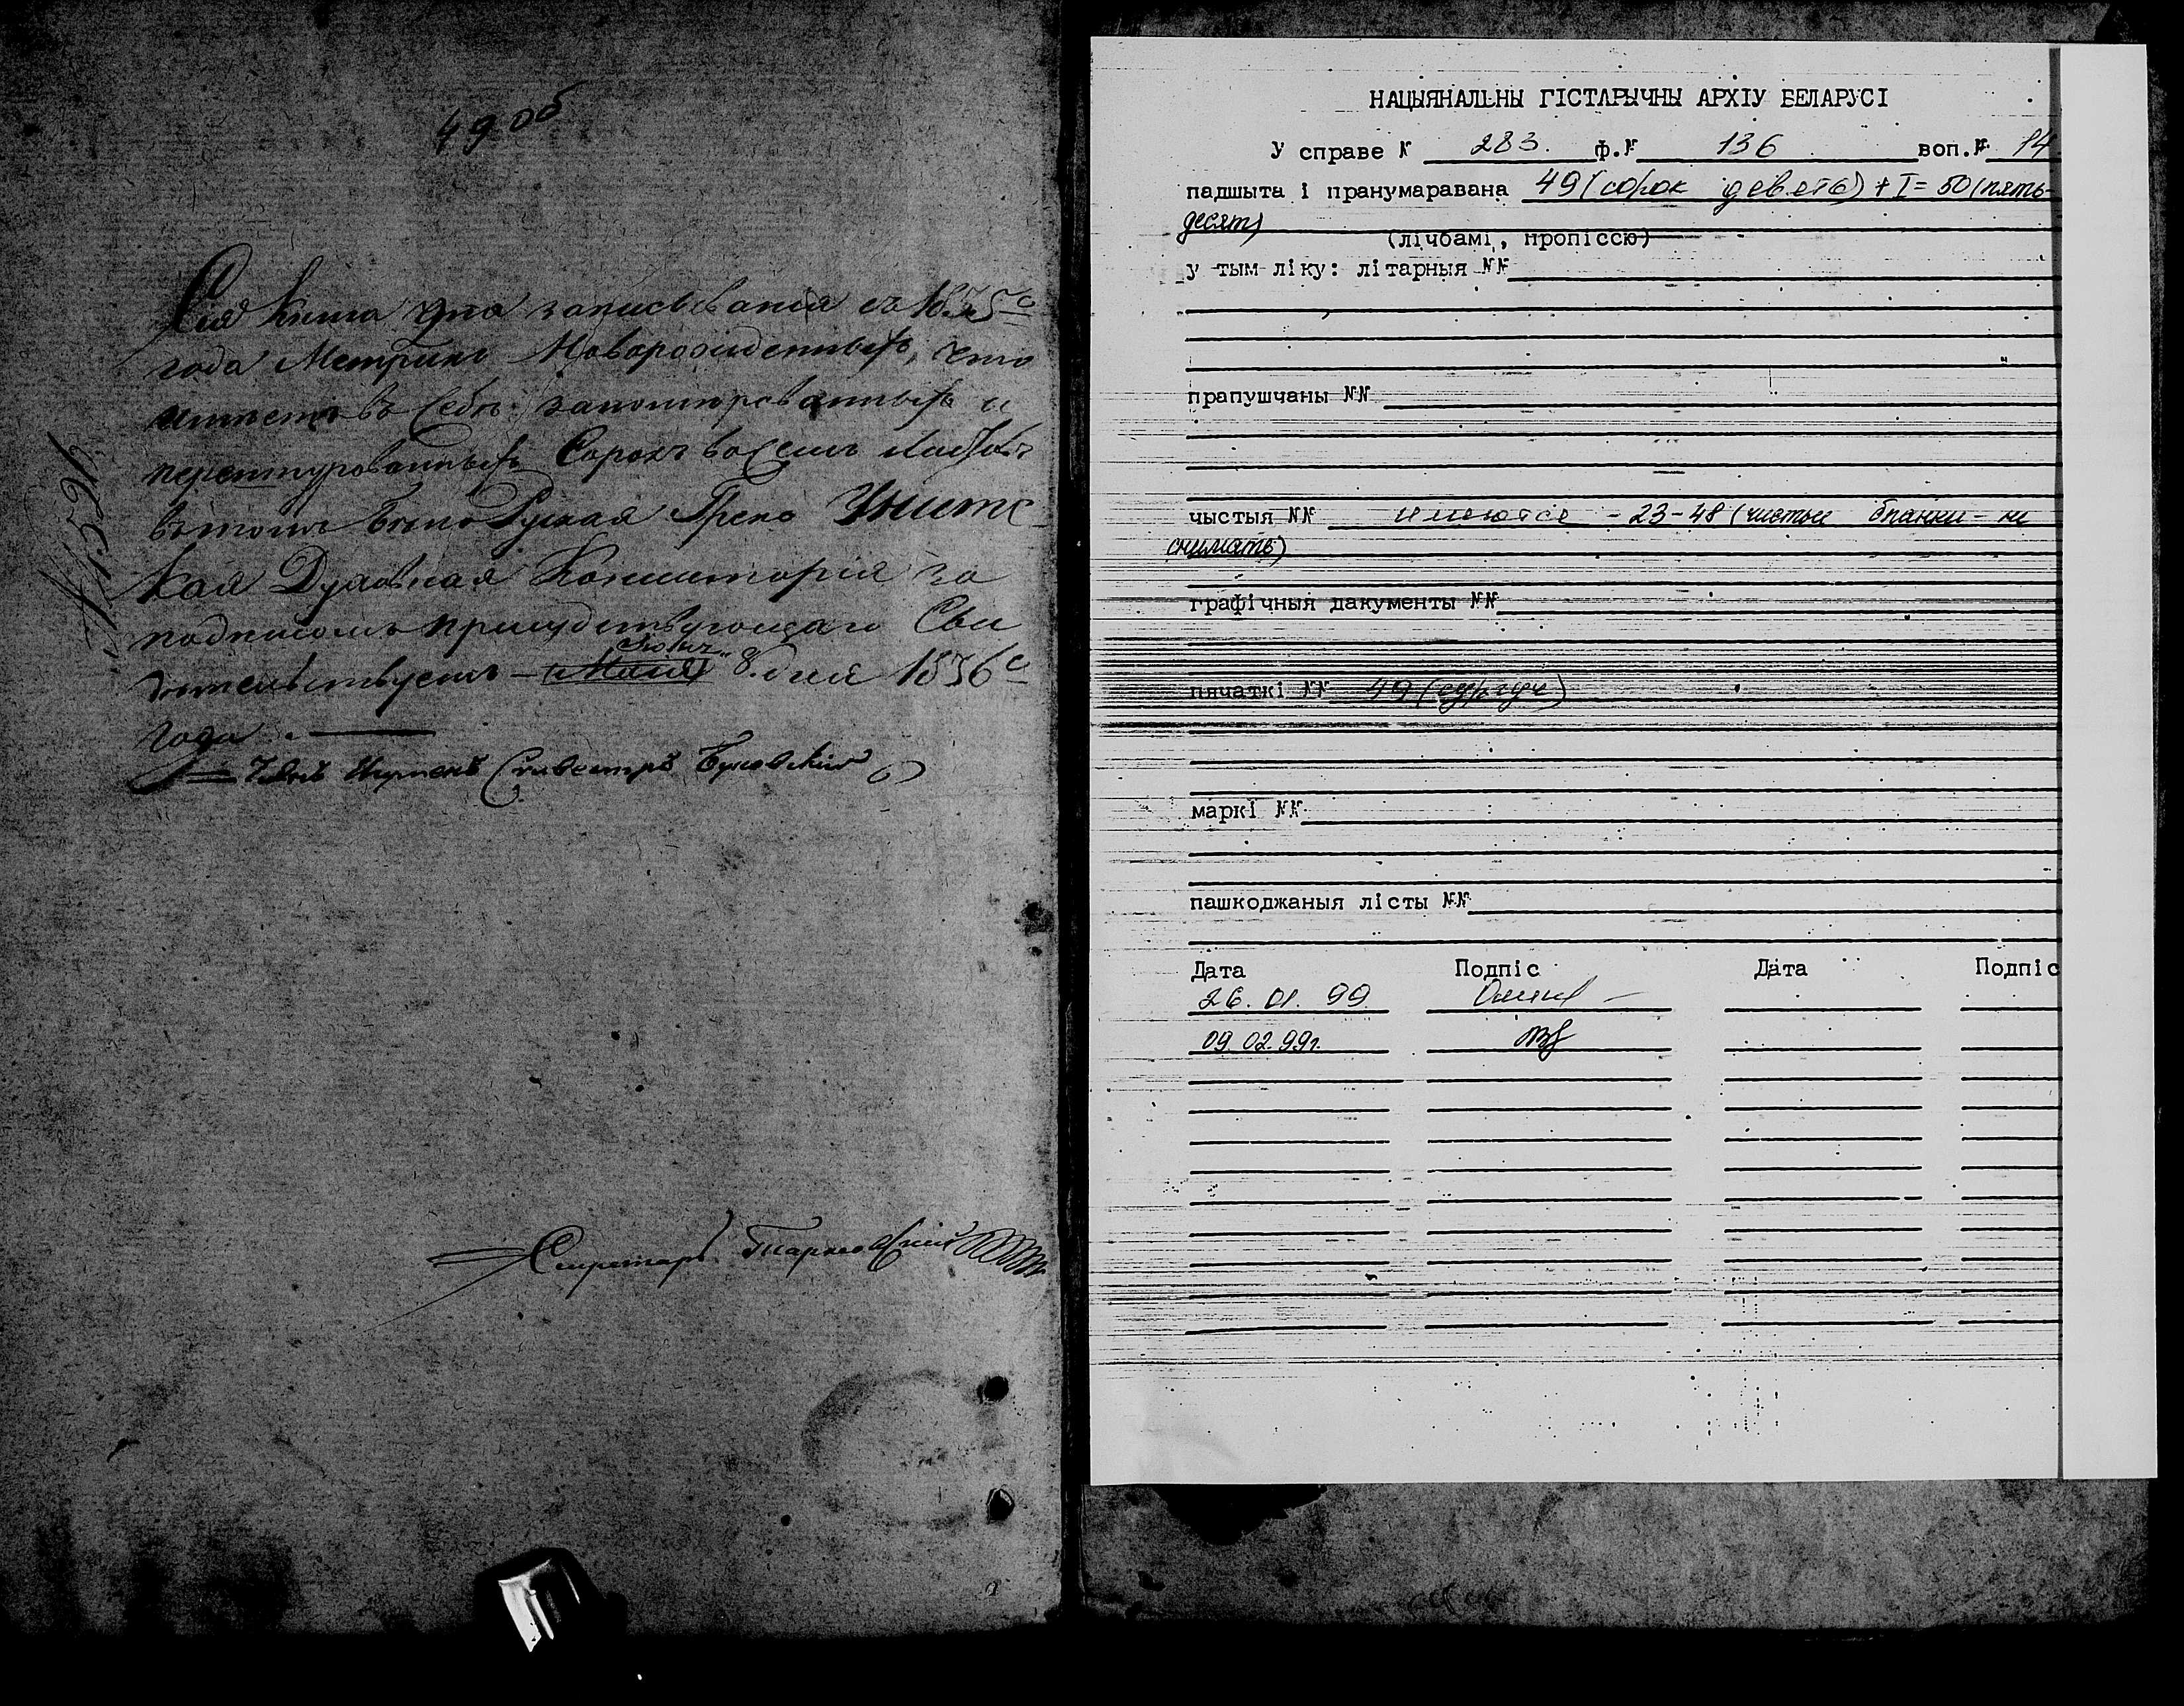 49 об
Сия Книга для записывания съ 1835го
года Метрикъ Новорожденныхъ, что
имѣетъ въ Себѣ занумерованныхъ и
Сорокъ восемъ листовъ
въ томъ Греко Унитс-
кая Духовная Консисторія за
подписомъ присудствующаго Сви
дѣтельствуетъ – 8. дня 1836го
года.
Членъ Игуменъ Сильвестръ
Секретарь
НАЦЫЯНАЛЬНЫ ГІСТАРЫЧНЫ АРХІУ БЕЛАРУСІ
У справе № 283. ф.№ 136 воп.№ 14
падшыта і пранумаравана 49 (сорок девять) + I = 50 (пять-
десят)
(лічбамі, пропіссю)
у тым ліку: літарныя №№
прапушчаны №№
чыстыя №№ имеются - 23-48 (чистые бланки - не
снимать)
графічныя дакументы №№
пячаткі №№ 49 (сургуч)
маркі №№
пашкоджаныя лісты №№
Дата Подпіс Дата Подпіс
26.01.99
09.02.99г.